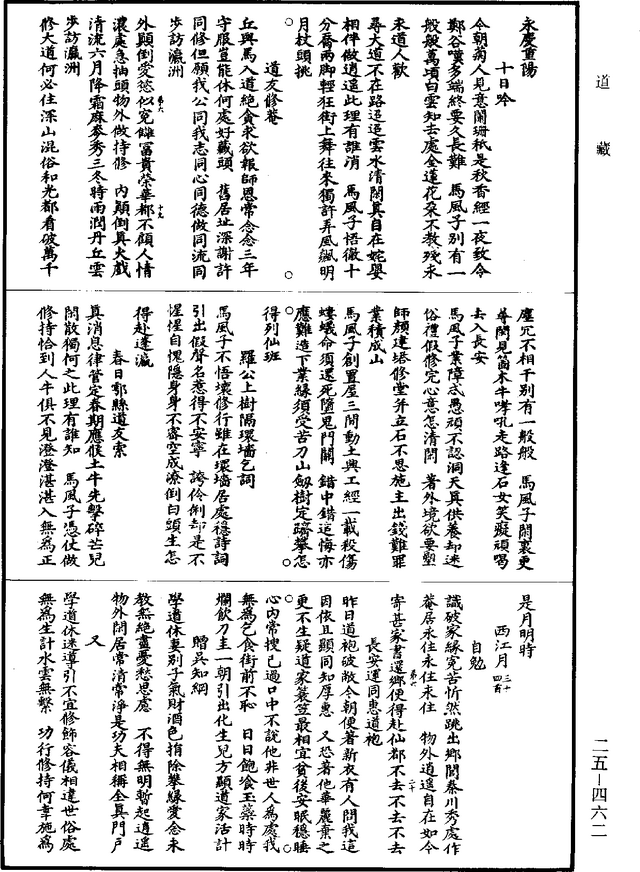 道藏
永慶重陽
十日吟
今朝菊人見意闌珊秖是秋香經一夜致令
鄭谷嘆多端終要久長難 馬風子別有一
般般萬頃白雲知去處金蓮花朵不教殘未
來道人歡
尋大道不在路迢迢雲水清閑真自在姹嬰
相伴做逍遙此理有誰消 馬風子悟徹十
分喬兩脚輕狂街上舞往來獨許弄風飆明
月杖頭挑
道友修菴
丘與馬入道絕貪求欲報師恩常念念三年
守服豈能休何處好藏頭 舊居址深謝許
同修但願我公同我志同心同德做同流同
步訪瀛洲
外顛倒愛慾似冤讎富貴榮華都不顧人情
濃處急抽頭物外做持修 內顛倒真火戲
清流六月降霜麻麥秀三冬時雨潤丹丘雲
步訪瀛洲
修大道何必住深山混俗和光都看破萬千
塵冗不相干別有一般般 馬風子閑裏更
尋閑見箇木牛哮吼走路逢石女笑癡頑喝
去入長安
馬風子業障忒愚頑不認洞天真供養却迷
俗禮假修完心意怎清閑 著外境欲要塑
師顏建塔修堂并立石不思施主出錢難罪
業積成山
馬風子創置屋三間動土興工經一載殺傷
螻蟻命須還死隨見門關 錯中錯這悔亦
應難造下業緣須受苦刀山劒樹定躋攀怎
得列仙班
羅公上樹隔環墻乞詞
馬風子不悟壞修行雖在環墻居處穩詩詞
引出假聲名惹得不安寧 誇伶俐却是不
惺惺自愧隱身身不密空成潦倒白頭生怎
得赴蓬瀛
春日鄠縣道友索
真消息律管定春期應候土牛先擊碎芒兒
閑散獨何之此理有誰知 馬風子憑仗做
修持恰到人牛俱不見澄澄湛湛入無為正
是月明時
西江月三十四首
自勉
識破家緣冤苦忻然跳出鄉閭秦川秀處作
菴居永住永住永住 物外逍遙自在如今
寄甚家書還鄉便得赴仙都不去不去不去
長安運同惠道袍
昨日道袍破敝今朝便著新衣有人問我這
因依且顯同知厚惠 又恐著他華麗棄之
更不生疑道家簑笠最相宜貧後安眠穩睡
心內常搜己過口中不說他非世人為處我
無為乞食街前不恥 日日飽飡玉蘂時時
爛飲刀圭一朝引出化生兒方顯道家活計
贈吳知綱
學道休妻別子氣財酒色捐除攀緣愛念永
教無絕盡憂愁思慮 不得無明暫起逍遙
物外閑居常清常淨是功夫相稱全真門戶
又
學道休迷導引不宜修飾容儀相違世俗處
無為生計水雲無繫 功行修持何幸施為
二五—四六二